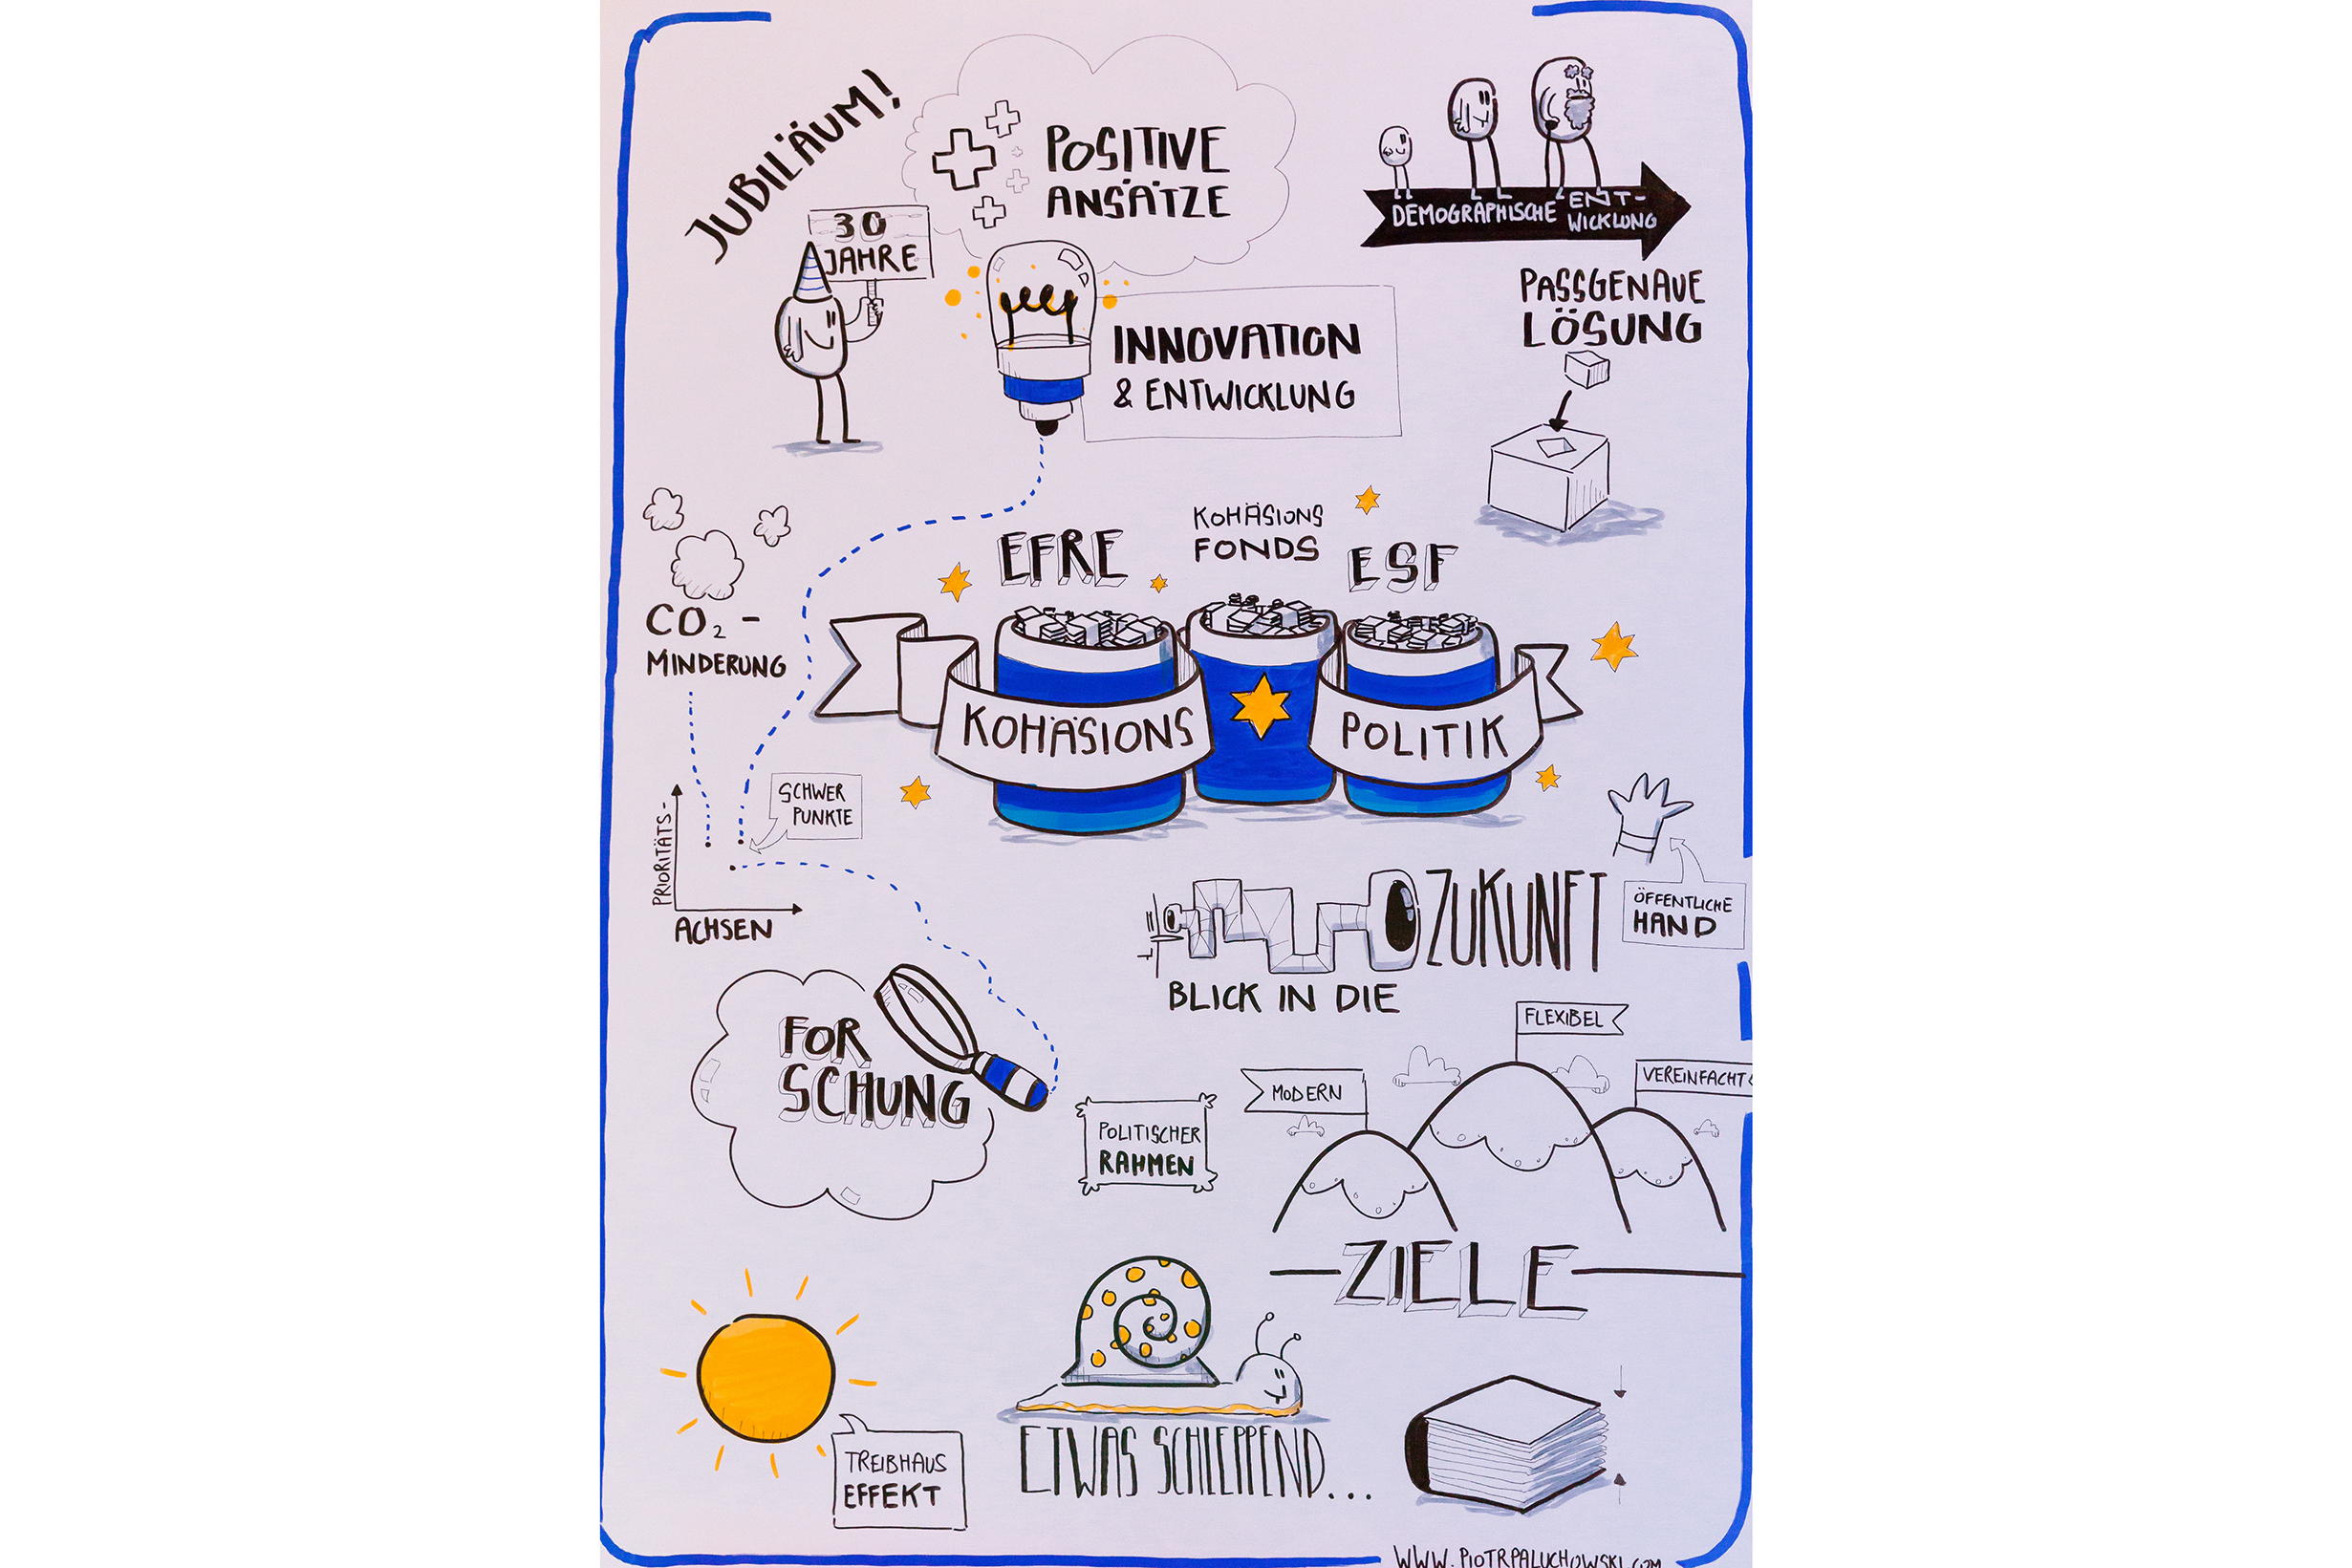 JUBILÄUM!
30
JAHRE
POSITIVE
ANSÄTZE
INNOVATION
& ENTWICKLUNG
DEMOGRAPHISCHE ENT-
WICKLUNG
PASSGENAUE
LÖSUNG
CO₂-
MINDERUNG
EFRE
KOHÄSIONS
FONDS
ESF
KOHÄSIONS
POLITIK
SCHWER
PUNKTE
PRIORITÄTS-
ACHSEN
ZUKUNFT
BLICK IN DIE
ÖFFENTLICHE
HAND
FOR
SCHUNG
POLITISCHER
RAHMEN
FLEXIBEL
MODERN
VEREINFACHT
ZIELE
TREIBHAUS
EFFEKT
ETWAS SCHLEPPEND...
WWW.PIOTRPALUCHOWSKI.COM